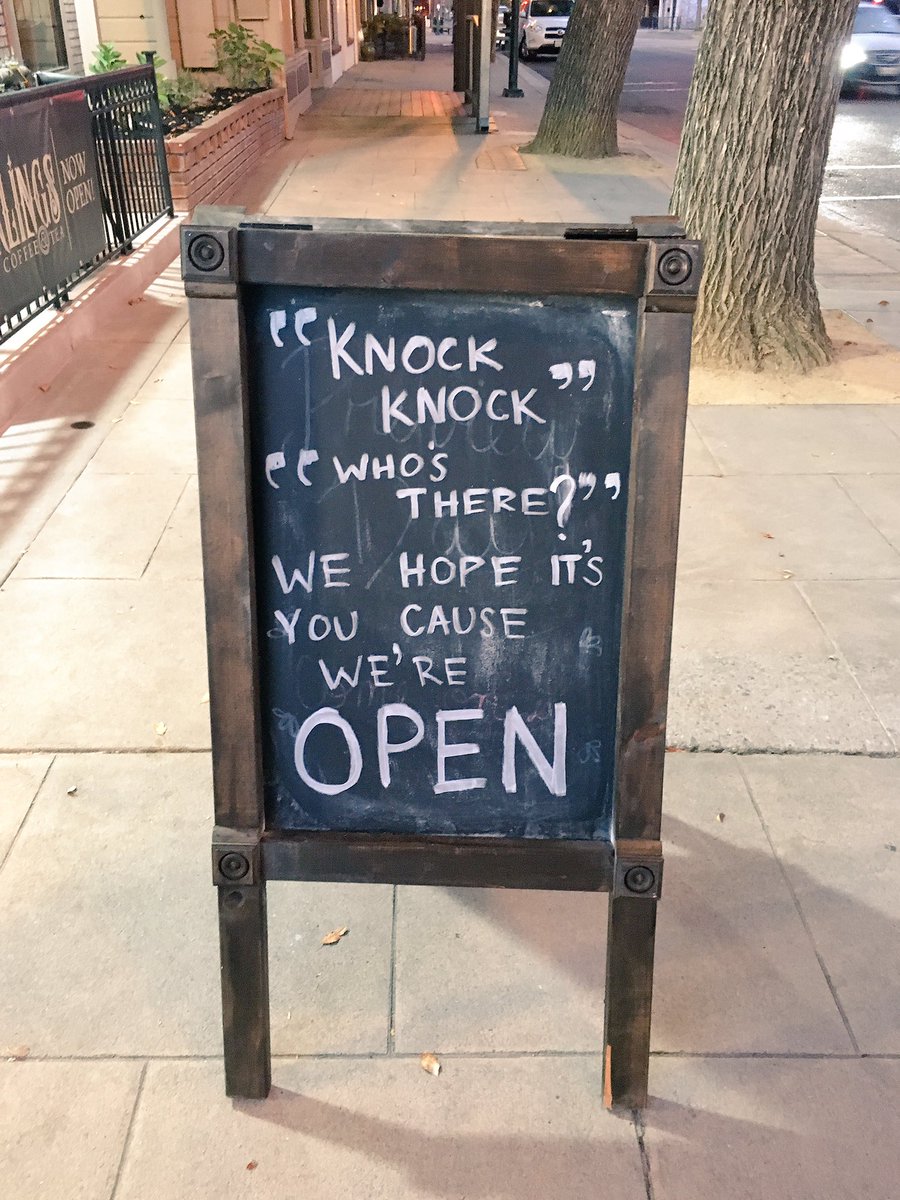 LINGS
NOW
OPEN!
COFFEE & TEA
“KNOCK
KNOCK”
“WHO'S
THERE?”
WE HOPE IT'S
YOU CAUSE
WE'RE
OPEN